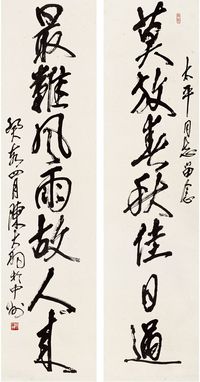 太平同志留念
莫放春秋佳日過
最難風雨故人來
癸亥四月陳大羽於中州